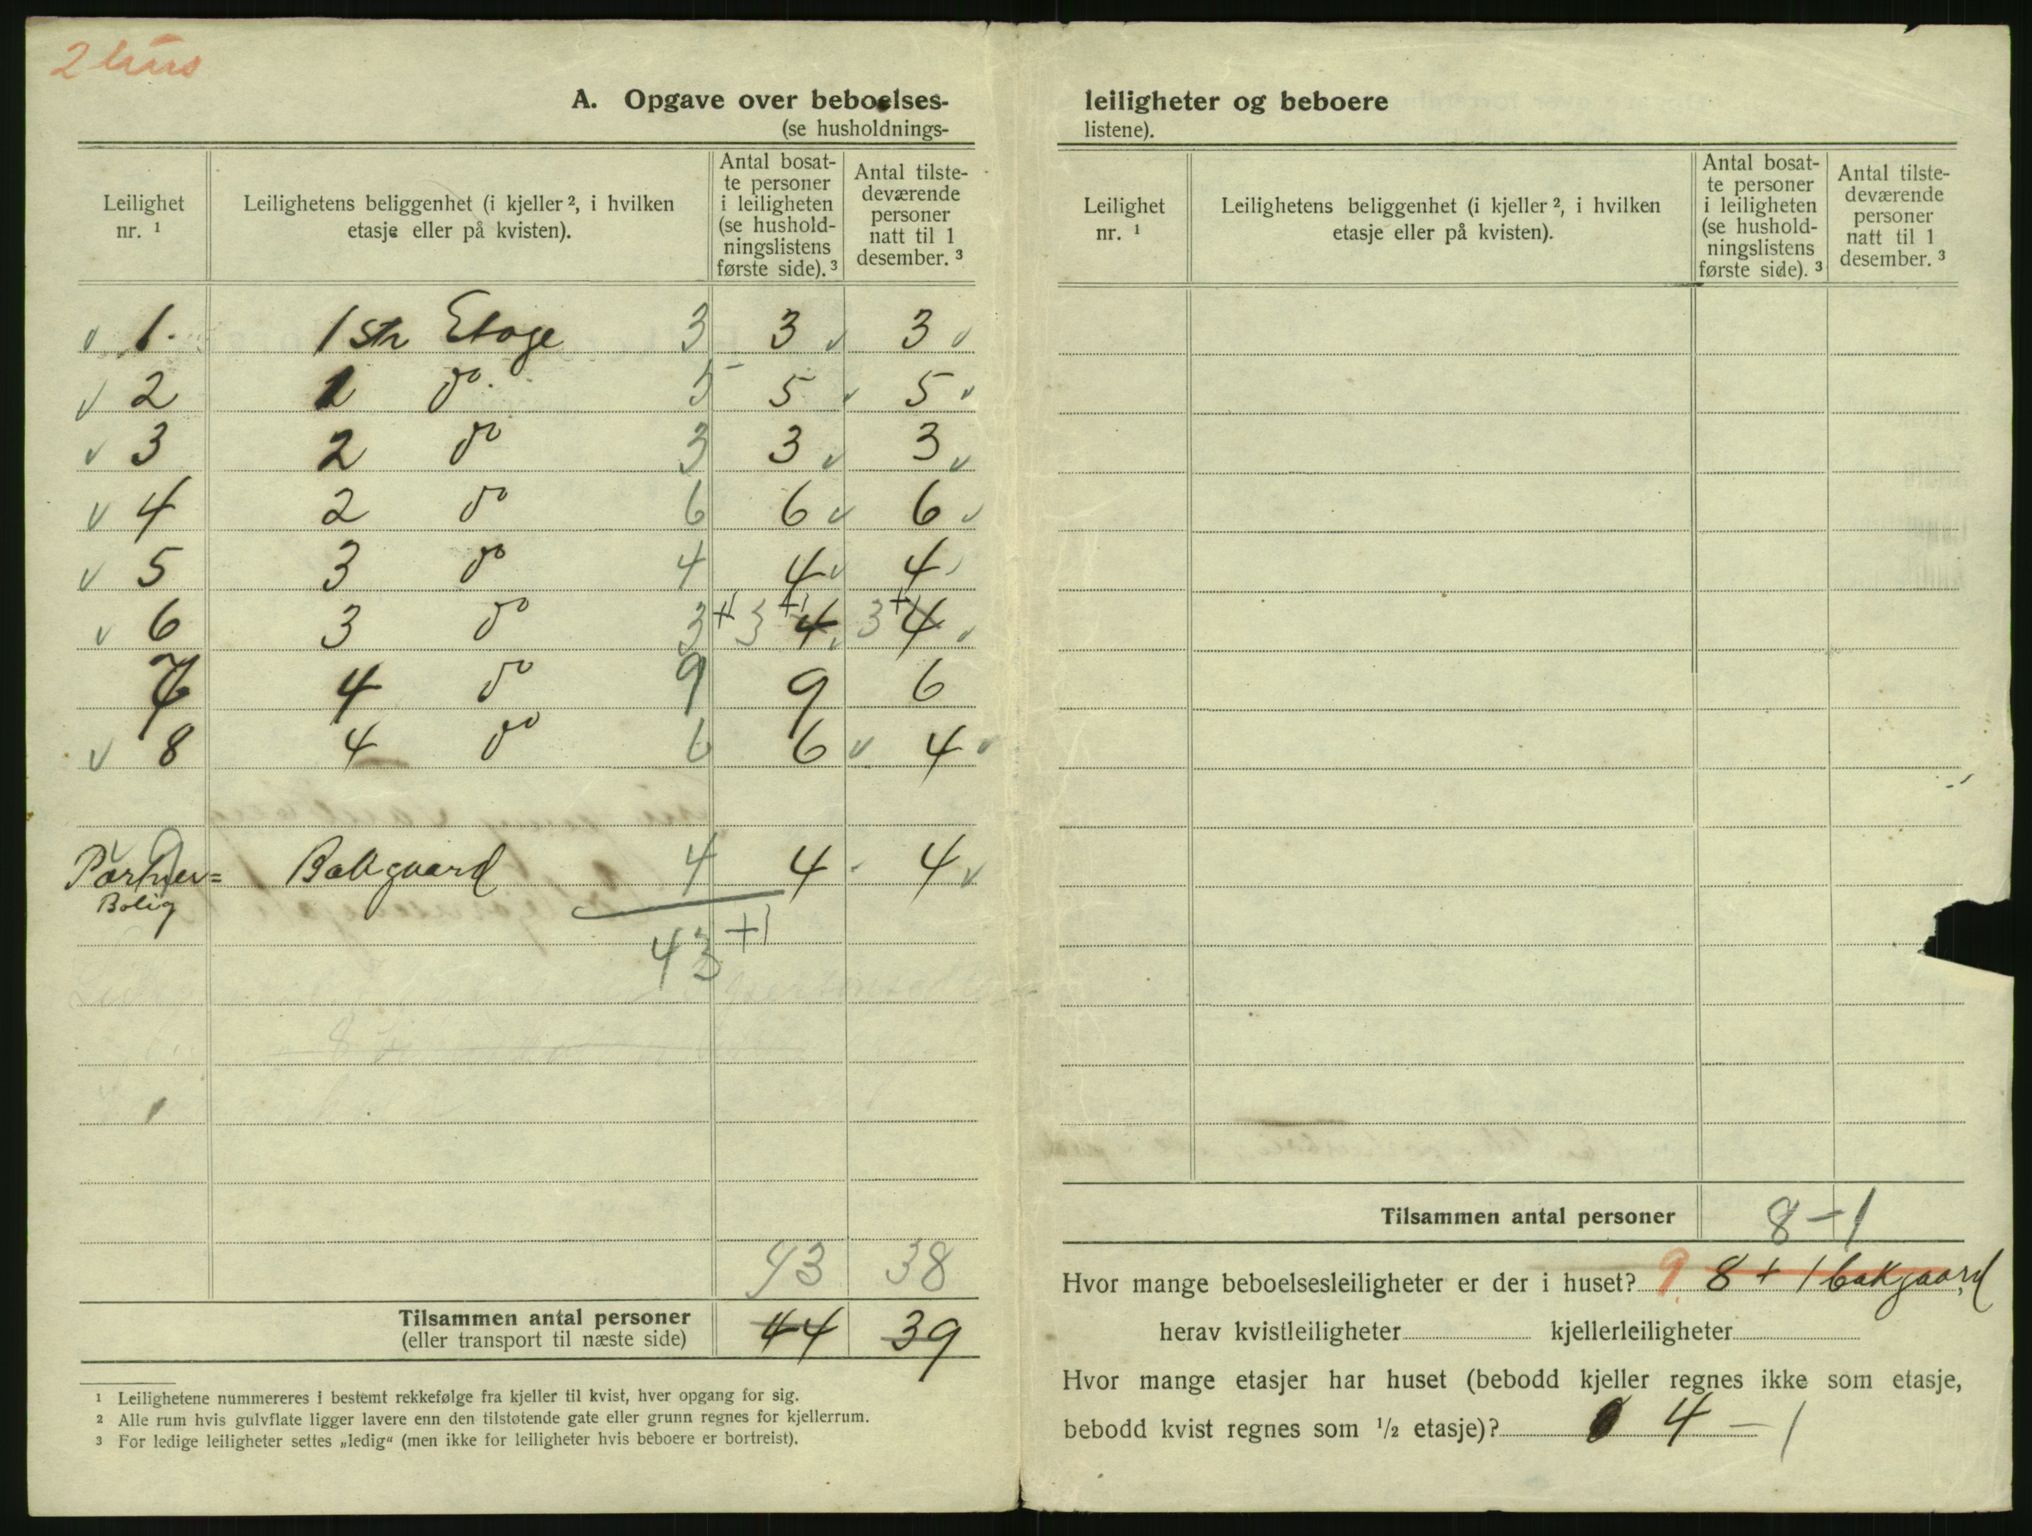 2 hus
A. Opgave over beboelses-
(se husholdnings-
Leilighet nr. ¹
Leilighetens beliggenhet (i kjeller ², i hvilken etasje eller på kvisten).
Antal bosat-
te personer
i leiligheten
(se hushold-
ningslistens
første side). ³
Antal tilste-
deværende
personer
natt til 1
desember. ³
1. 1ste Etage 3 3 3
2 1 do. 5 5 5
3 2 do 3 3 3
4 2 do 6 6 6
5 3 do 4 4 4
6 3 do 3+1 3+1 4 3+1 4
7 4 do 9 9 6
8 4 do 6 6 4
Portner= Bakgaard 4 4 4
Bolig
43 +1
43 38
Tilsammen antal personer 44 39
(eller transport til næste side)
¹ Leilighetene nummereres i bestemt rekkefølge fra kjeller til kvist, hver opgang for sig.
² Alle rum hvis gulvflate ligger lavere enn den tilstøtende gate eller grunn regnes for kjellerrum.
³ For ledige leiligheter settes „ledig“ (men ikke for leiligheter hvis beboere er bortreist).
leiligheter og beboere
listene).
Leilighet nr. ¹
Leilighetens beliggenhet (i kjeller ², i hvilken etasje eller på kvisten).
Antal bosat-
te personer
i leiligheten
(se hushold-
ningslistens
første side). ³
Antal tilste-
deværende
personer
natt til 1
desember. ³
Tilsammen antal personer 8-1
Hvor mange beboelsesleiligheter er der i huset? 9. 8 + 1 bakgaard,
herav kvistleiligheter kjellerleiligheter
Hvor mange etasjer har huset (bebodd kjeller regnes ikke som etasje,
bebodd kvist regnes som ½ etasje)? 4 - 1